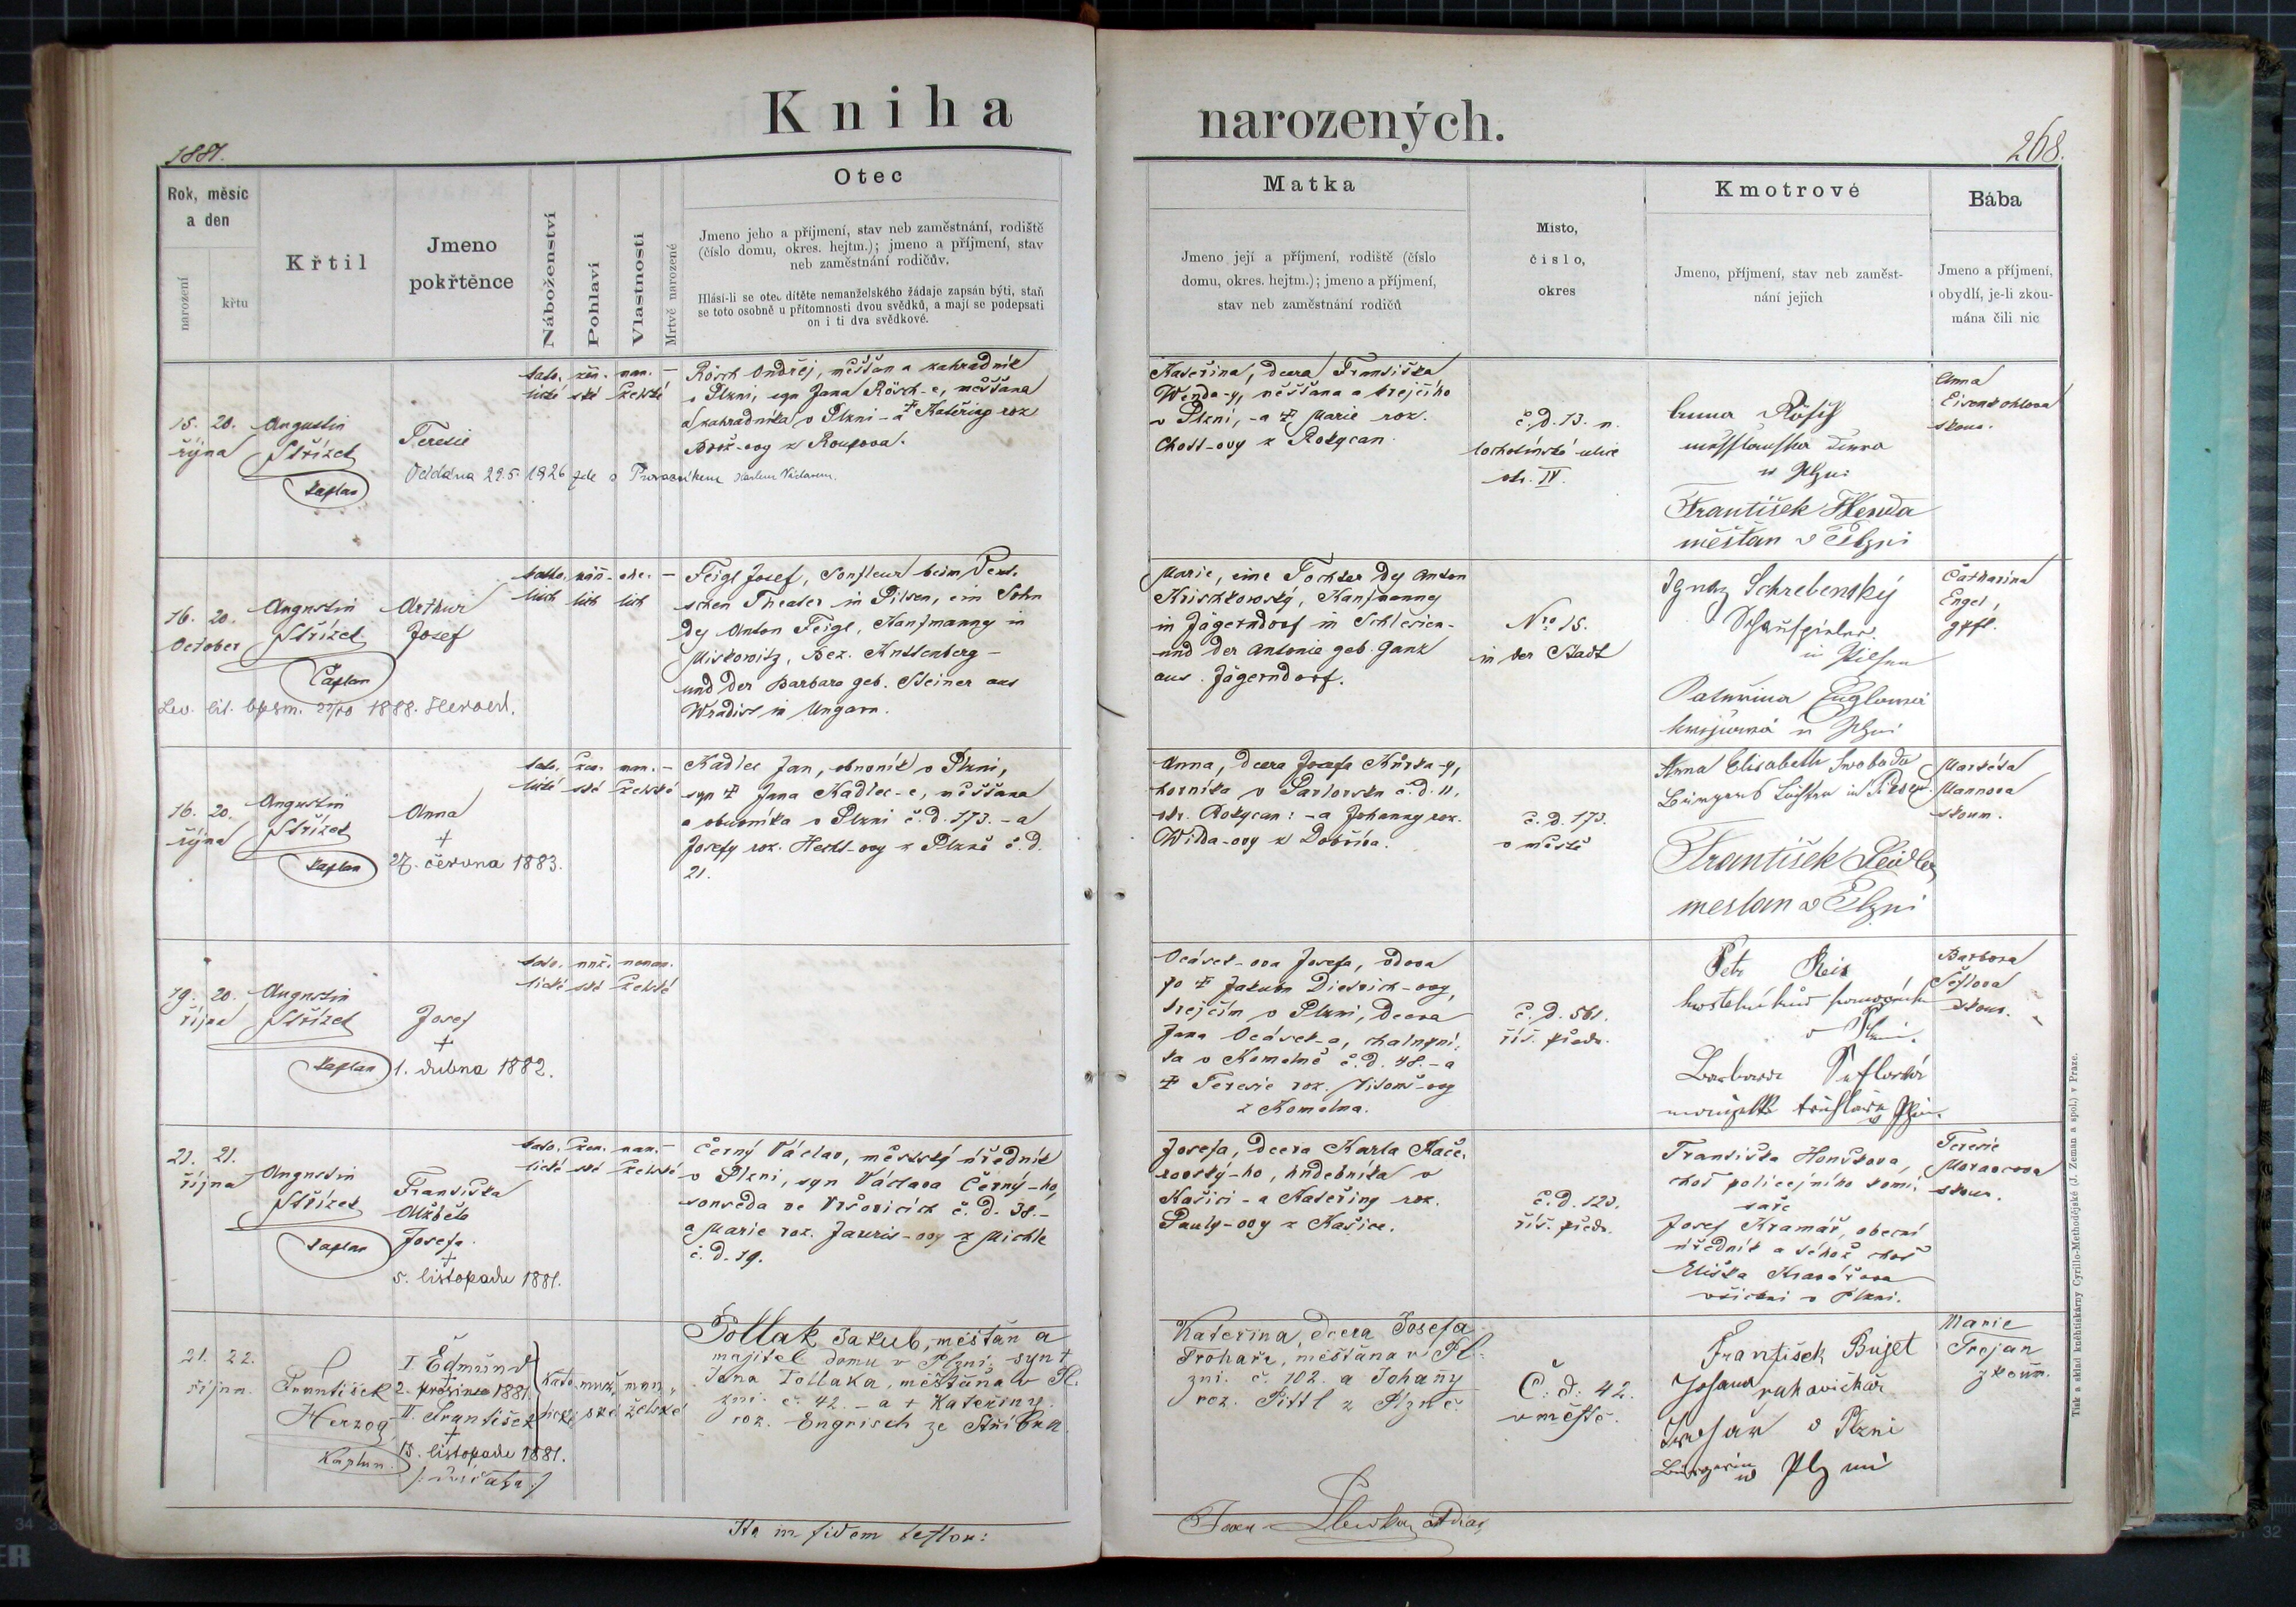 Kniha narozených.
1881.
268.
Rok, měsíc
a den
narození
křtu
Křtil
Jmeno
pokřtěnce
Náboženství
Pohlaví
Vlastnosti
Mrtvě narozené
Otec
Jmeno jeho a příjmení, stav neb zaměstnání, rodiště
(číslo domu, okres. hejtm.); jmeno a příjmení, stav
neb zaměstnání rodičův.
Hlásí-li se otec dítěte nemanželského žádaje zapsán býti, staň
se toto osobně u přítomnosti dvou svědků, a mají se podepsati
on i ti dva svědkové.
Matka
Jmeno její a příjmení, rodiště (číslo
domu, okres. hejtm.); jmeno a příjmení,
stav neb zaměstnání rodičů
Místo,
číslo,
okres
Kmotrové
Jmeno, příjmení, stav neb zaměst-
nání jejich
Bába
Jmeno a příjmení,
obydlí, je-li zkou-
mána čili nic
15. 20.
října
Augustin
Střízek
kaplan
Teresie
Oddána 22.5. 1926 zde s
kato. žen. man. —
lické ské želské
Rösch Ondřej, měšťan a zahradník
v Plzni, syn Jana Rösch-e, měšťana
a zahradníka v Plzni - a † Kateřiny roz.
Brož-ovy z Roupova.
Kateřina, dcera Františka
Wenda-y, měšťana a krejčího
v Plzni, - a † Marie roz.
Chott-ovy z Rokycan.
č. d. 13. n.
lochotínská ulice
okr. IV.
Anna
w Plzni
František Wenda
měštan v Plzni
Anna
Eisenkohlova
zkoum.
16. 20.
October
Augustin
Střízek
Caplan
Arthur
Josef
Lev. lit. bpsm. 27/10 1888.
katho. män. ehe. —
lisch lich lich
Feigl Josef, Souffleur beim Deut-
schen Theater in Pilsen, ein Sohn
des Anton Feigl, Kaufmannes in
Miskowitz, Bez. Kuttenberg -
und der Barbara geb. Steiner aus
Wradist in Ungarn.
Marie, eine Tochter des Anton
Krischkowský, Kaufmannes
in Jägerndorf in Schlesien -
und der Antonie geb. Ganz
aus Jägerndorf.
Nro 15.
in der Stadt
Ignaz Schrebenský
Schauspieler
in Pilsen
Catharina
Engel,
gpft.
16. 20.
října
Augustin
Střízek
kaplan
Anna
+
27. června 1883.
kato. žen. man. —
lické ské želské
Kadlec Jan, obuvník v Plzni,
syn † Jana Kadlec-e, měšťana
a obuvníka v Plzni č. d. 173. - a
Josefy roz. Hecht-ovy z Plzně č. d.
21.
Anna, dcera Josefa Kůrka-y,
horníka v Pavlovsku č. d. 11.
okr. Rokycan: - a Johanny roz.
Wilda-ovy z Dobříva.
č. d. 173.
v městě
Anna Elisabeth Swoboda
Bürgers Tochter in Pilsen.
František
mestan v Plzni
Markéta
Mannova
zkoum.
19. 20.
října
Augustin
Střízek
kaplan
Josef
+
1. dubna 1882.
kato. muž. neman.
lické ské želské
Ocásek-ova Josefa, vdova
po † Jakubu Dietrich-ovy,
krejčím v Plzni, dcera
Jana Ocásek-a, chalupní-
ka v Komolně č. d. 48. - a
† Teresie roz.
z Komolna.
č. d. 561.
říš. předm.
Petr Reis
v Plzni.
Barbora
manželka truhláře v Plzni.
Barbora
Šeflova
zkoum.
21. 21.
října
Augustin
Střízek
kaplan
Františka
Alžběta
Josefa.
+
5. listopadu 1881.
kato. žen. man. —
lické ské želské
Černý Václav, městský úředník
v Plzni, syn Václava Černý-ho,
souseda ve Vršovicích č. d. 38. -
a Marie roz. Jauris-ovy z Michle
č. d. 19.
Josefa, dcera Karla Kače-
rovský-ho, hudebníka v
Kašici - a Kateřiny roz.
Pauly-ovy z Kašice.
č. d. 123.
říš. předm.
Františka Honškova,
choť policejního komi-
saře
Josef Kramář, obecní
úředník a téhož choť
Eliška Kramářova
všichni v Plzni.
Teresie
Moravcova
zkoum.
21. 22.
října.
František
Herzog
Kaplan.
I. Edmund
+
2. prosince 1881.
II. František
+
15. listopadu 1881.
/: dvojčata :/
kato- muž, man,
lické ské želské
Pollak Jakub, měšťan a
majitel domu v Plzni, syn †
Jana Pollaka, měšťána v Pl-
zni č. 42. - a † Kateřiny
roz. Engrisch ze Stříbra.
Kateřina, dcera Josefa
Trohaře, měšťána v Pl-
zni č. 102. a Johany
roz. Pittl z Plzně.
Č. d. 42.
v městě.
František Bujet
rukavičkář
v Plzni
Johana
Bürgerin
Marie
Trojan
zkoum.
Ita in fidem testor:
Tisk a sklad knihtiskárny Cyrillo-Methodějské (J. Zeman a spol.) v Praze.